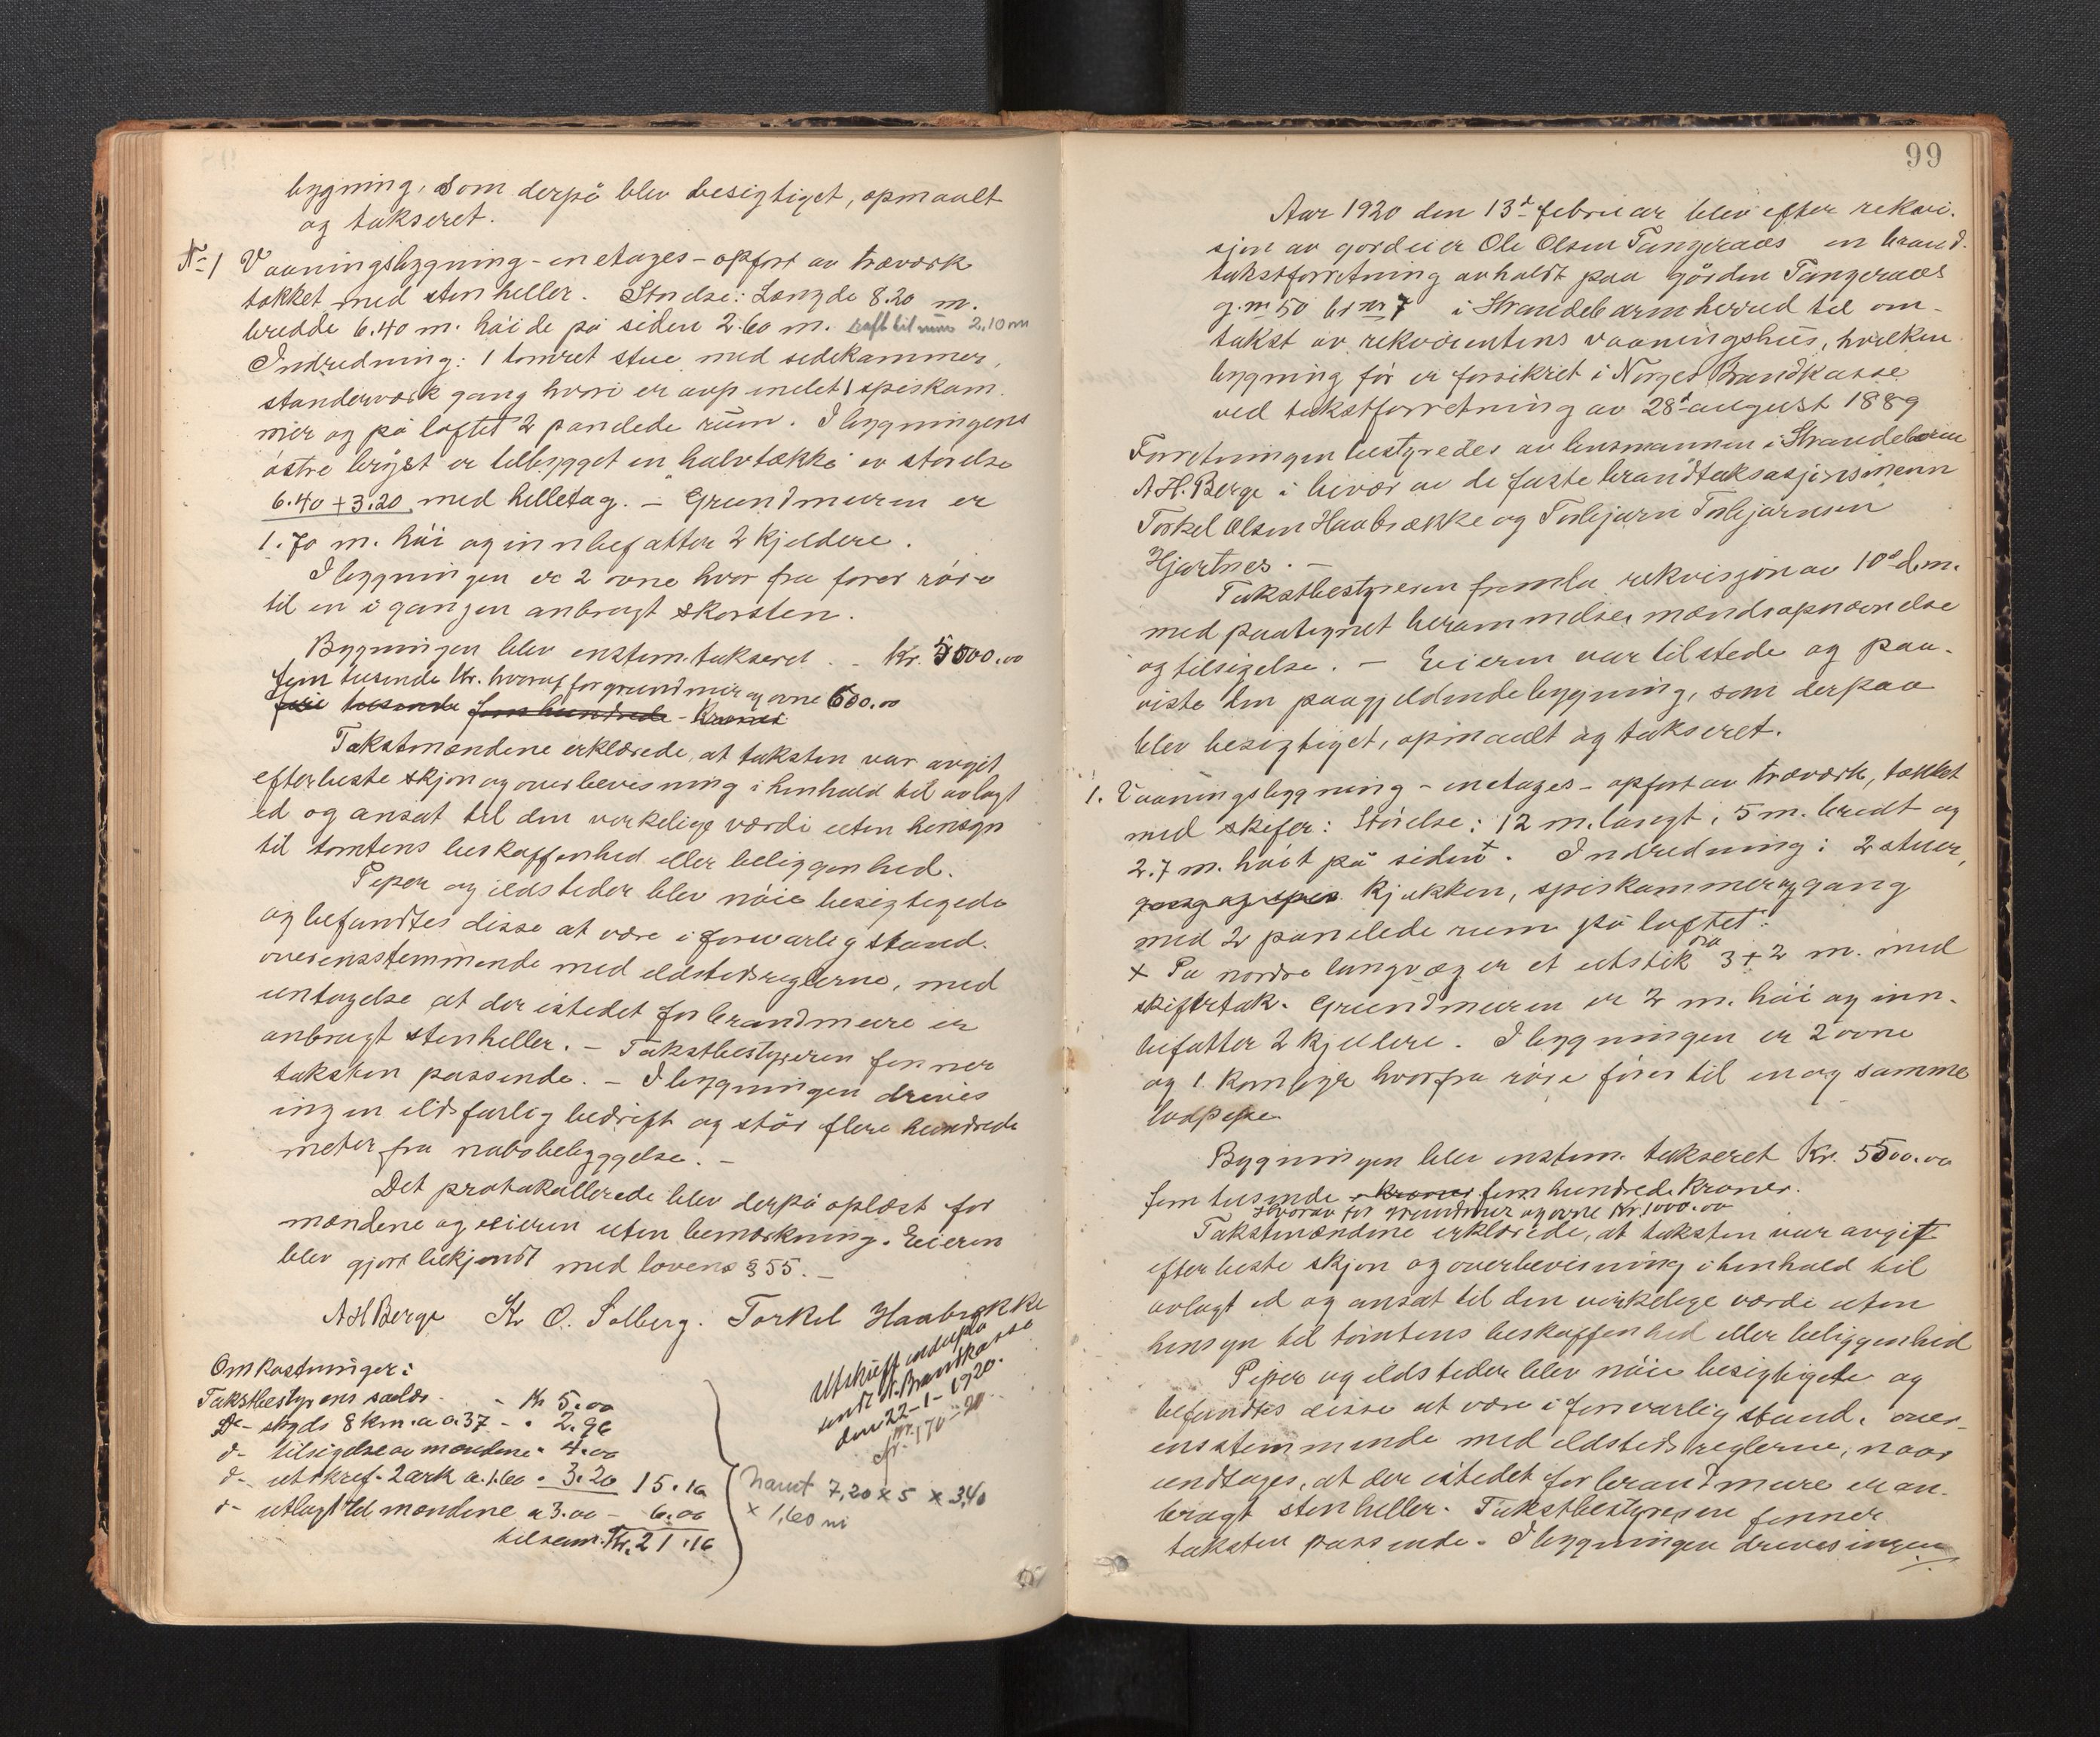 bygning, som derpå blev besigtiget, opmaalt
og takseret.
No 1 Vaaningsbygning - enetages - opført av træværk
tækket med stenheller. Størelse: Længde 8.20 m.
bredde 6.40 m. høide på siden 2.60 m. 2,10 m
Indredning: 1 tømret stue med sidekammer,
standerværk gang hvori er avpanelet 1 spiskam.
mer og på loftet 2 panelede rum. I bygningens
østre bryst er tilbygget en halvtække av størelse
6.40 + 3.20 med helletag. - Grundmuren er
1.70 m. høi og innbefatter 2 kjeldere.
I bygningen er 2 ovne hvor fra fører rör
til en i gangen anbragt skorsten.
Bygningen blev enstem. takseret . - Kr. 5000.00
fem tusende Kr. hvorav for grundmur og ovne 600.00
fire tusende fem hundrede - Kroner
Takstmændene erklærede, at taksten var avgit
efter beste skjøn og overbevisning i henhold til avlagt
ed og ansat til den verkelige værdi uten hensyn
til tomtens beskaffenhed eller beliggenhed.
Piper og ildsteder blev nöie besigtigede
og befandtes disse at være i forsvarlig stand.
overensstemmende med ildstedsreglerne, med
untagelse at der istedet for brandmure er
anbragt stenheller. - Takstbestyreren finner
taksten passende. - I bygningen drives
ingen ildsfarlig bedrift og står flere hundrede
meter fra nabobebyggelse. -
Det protokollerede blev derpå oplæst for
mændene og eieren uten bemærkning. Eieren
blev gjort bekjendt med lovens § 55. -
AH Berge K. O. Solberg. Torkel Haabrekke
Utskrift
sendt N. Brandkasse
den 22-1-1920.
jr. nr. 170-20
Omkostninger:
Takstbestyrens salær - - Kr 5.00
Do - skyds 8 km. a 0.37 - " 2.96
d - tilsigelse av mændene " 4.00
d - utskrif. 2 ark a. 1.60 " 3.20 15.16
d - utlagt til mændene a 3.00 - 6.00
tilsam. Kr. 21.16
7,20 x 5 x 3,40
x 1,60 m
99
Aar 1920 den 13d februar blev efter rekvi.
sjon av gardeier Ole Olsen Tangeraas en brand.
takstforretning avholdt paa gården Tangeraas
g. nr 50 br nr 7 i Strandebarm herred til om-
takst av rekvirentens vaaningshus, hvilken
bygning før er forsikret i Norges Brandkasse
ved takstforretning av 28d august 1889
Forretningen bestyredes av lensmannen i Strandebarm
A H. Berge i bivær av de faste brandtaksasjonsmenn
Torkel Olsen Haabrække og Torbjørn Torbjørnsen
Hjartnes. -
Takstbestyreren fremla rekvisjon av 10d d.m.
med paategnet berammelse, mændsopnævnelse
og tilsigelse. - Eieren var tilstede og paa-
viste den paagjeldende bygning, som derpaa
blev besigtiget, opmaalt og takseret.
1. Vaaningsbygning - enetages - opført av træværk, tækket
med skifer: Störelse: 12 m. langt, 5 m. bredt og
2.7 m. høit på siden x. Indredning: 2 stuer,
gang og spis Kjøkken, spiskammer og gang
med 2 panelede rum på loftet.
x På nordre langvæg er et utstik 3 + 2 m. med
skifertak. Grundmuren er 2 m. høi og inn-
befatter 2 kjellere. I bygningen er 2 ovne
og 1 komfyr hvorfra röre fører til en og samme
lodpipe
Bygningen blev enstem. takseret Kr. 5500.00
fem tusende kroner fem hundrede Kroner.
Hvorav for grundmur og ovne Kr. 1000.00
Takstmændene erklærede, at taksten var avgit
efter beste skjøn og overbevisning i henhold til
avlagt ed og ansat til den virkelige værdi uten
hensyn til tomtens beskaffenhed eller beliggenhed
Piper og ildsteder blev nöie besigtigede og
befandtes disse at være i forsvarlig stand, over-
ensstemmende med ildstedsreglerne, naar
undtages, at der istedet for brandmure er an-
bragt stenheller. Takstbestyreren finner
taksten passende. I bygningen drives ingen